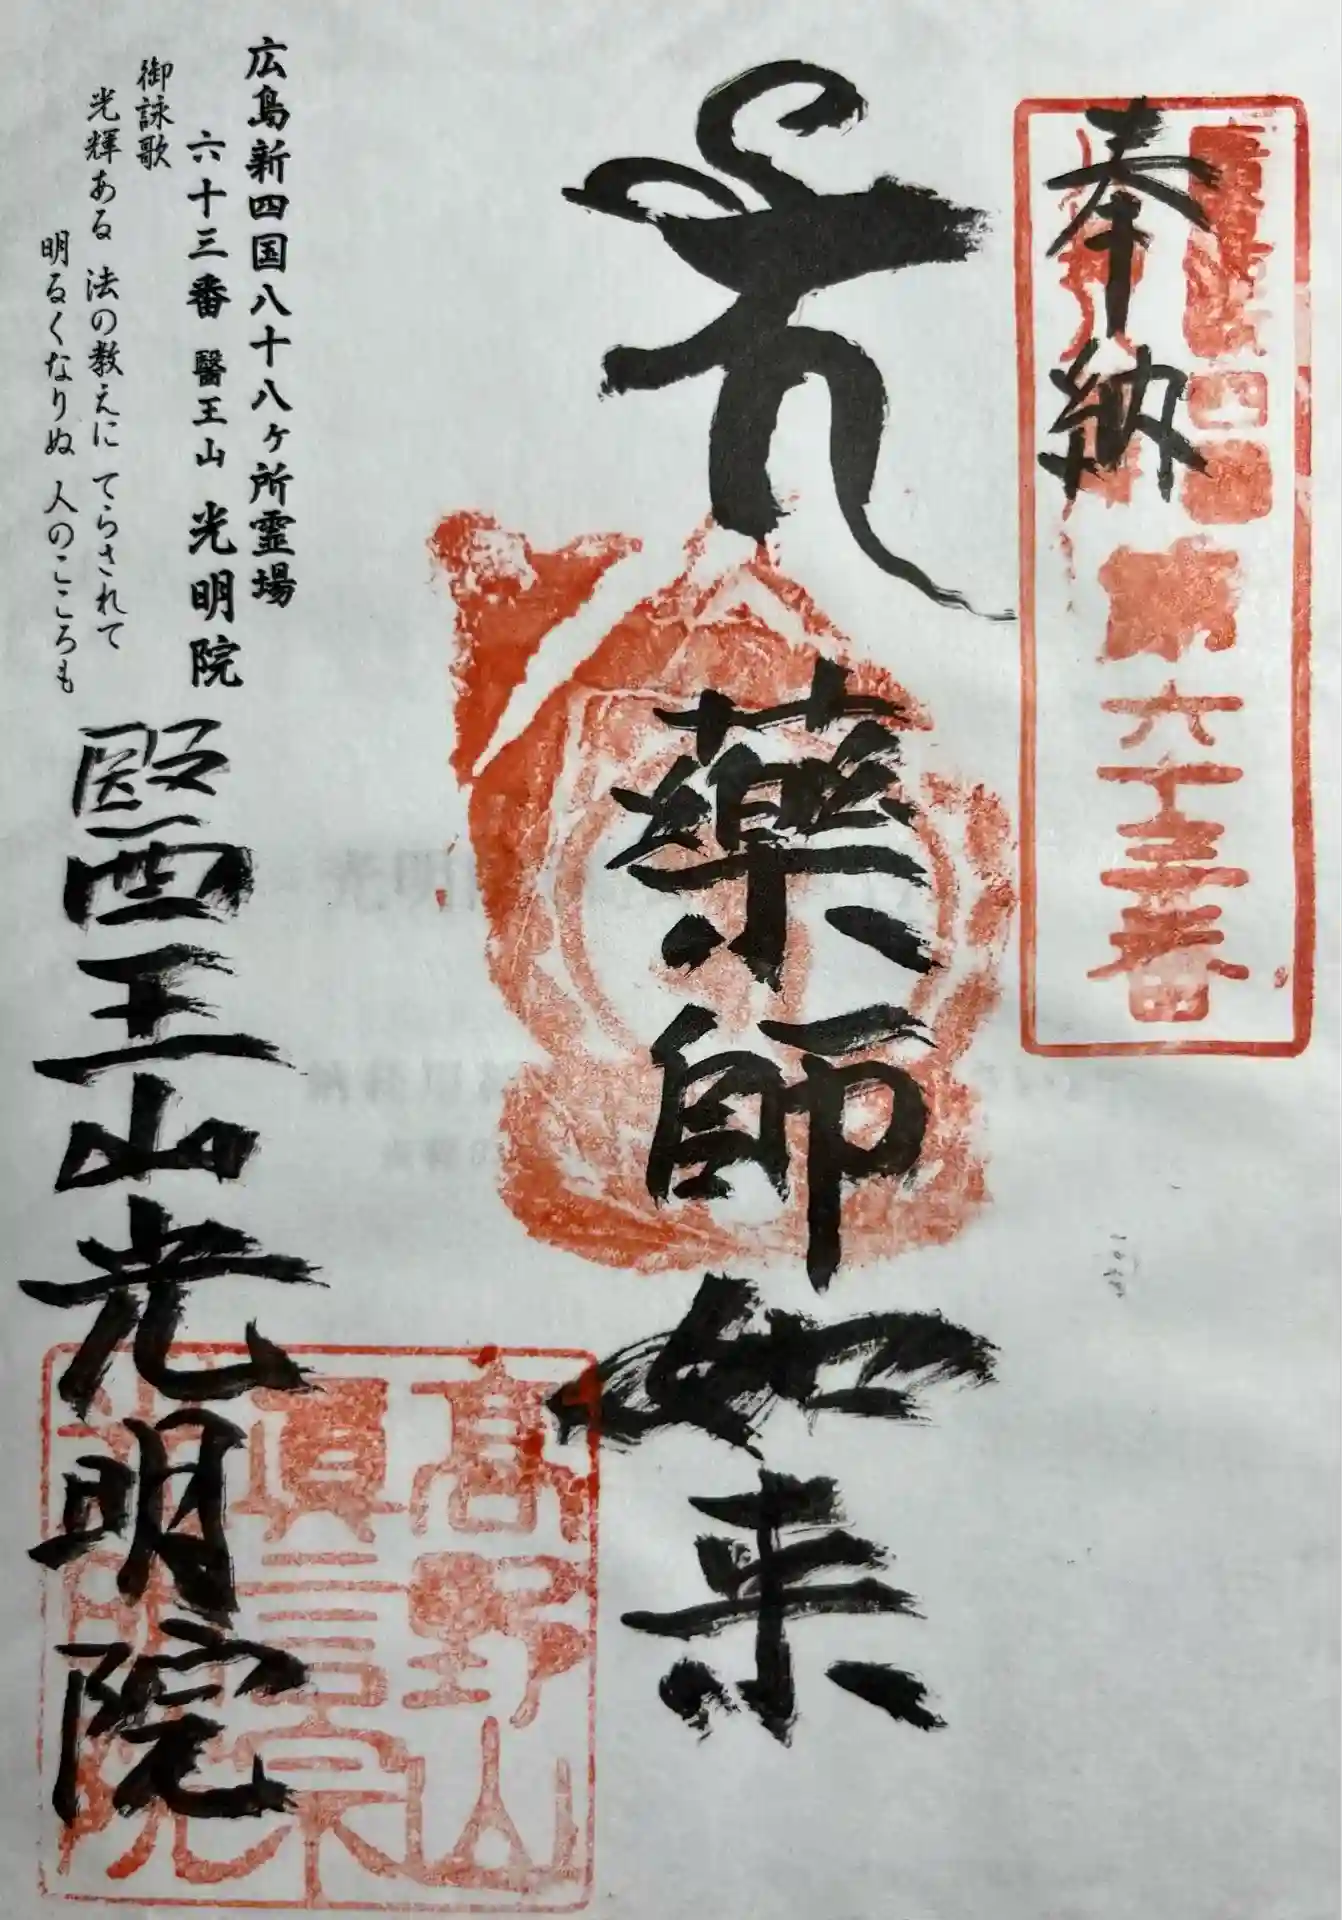 奉納
第六十三番
薬師如来
醫王山光明院
高野山
真言宗
光明院
広島新四国八十八ヶ所霊場
六十三番 醫王山 光明院
御詠歌
光輝ある 法の教えに てらされて
明るくなりぬ 人のこころも